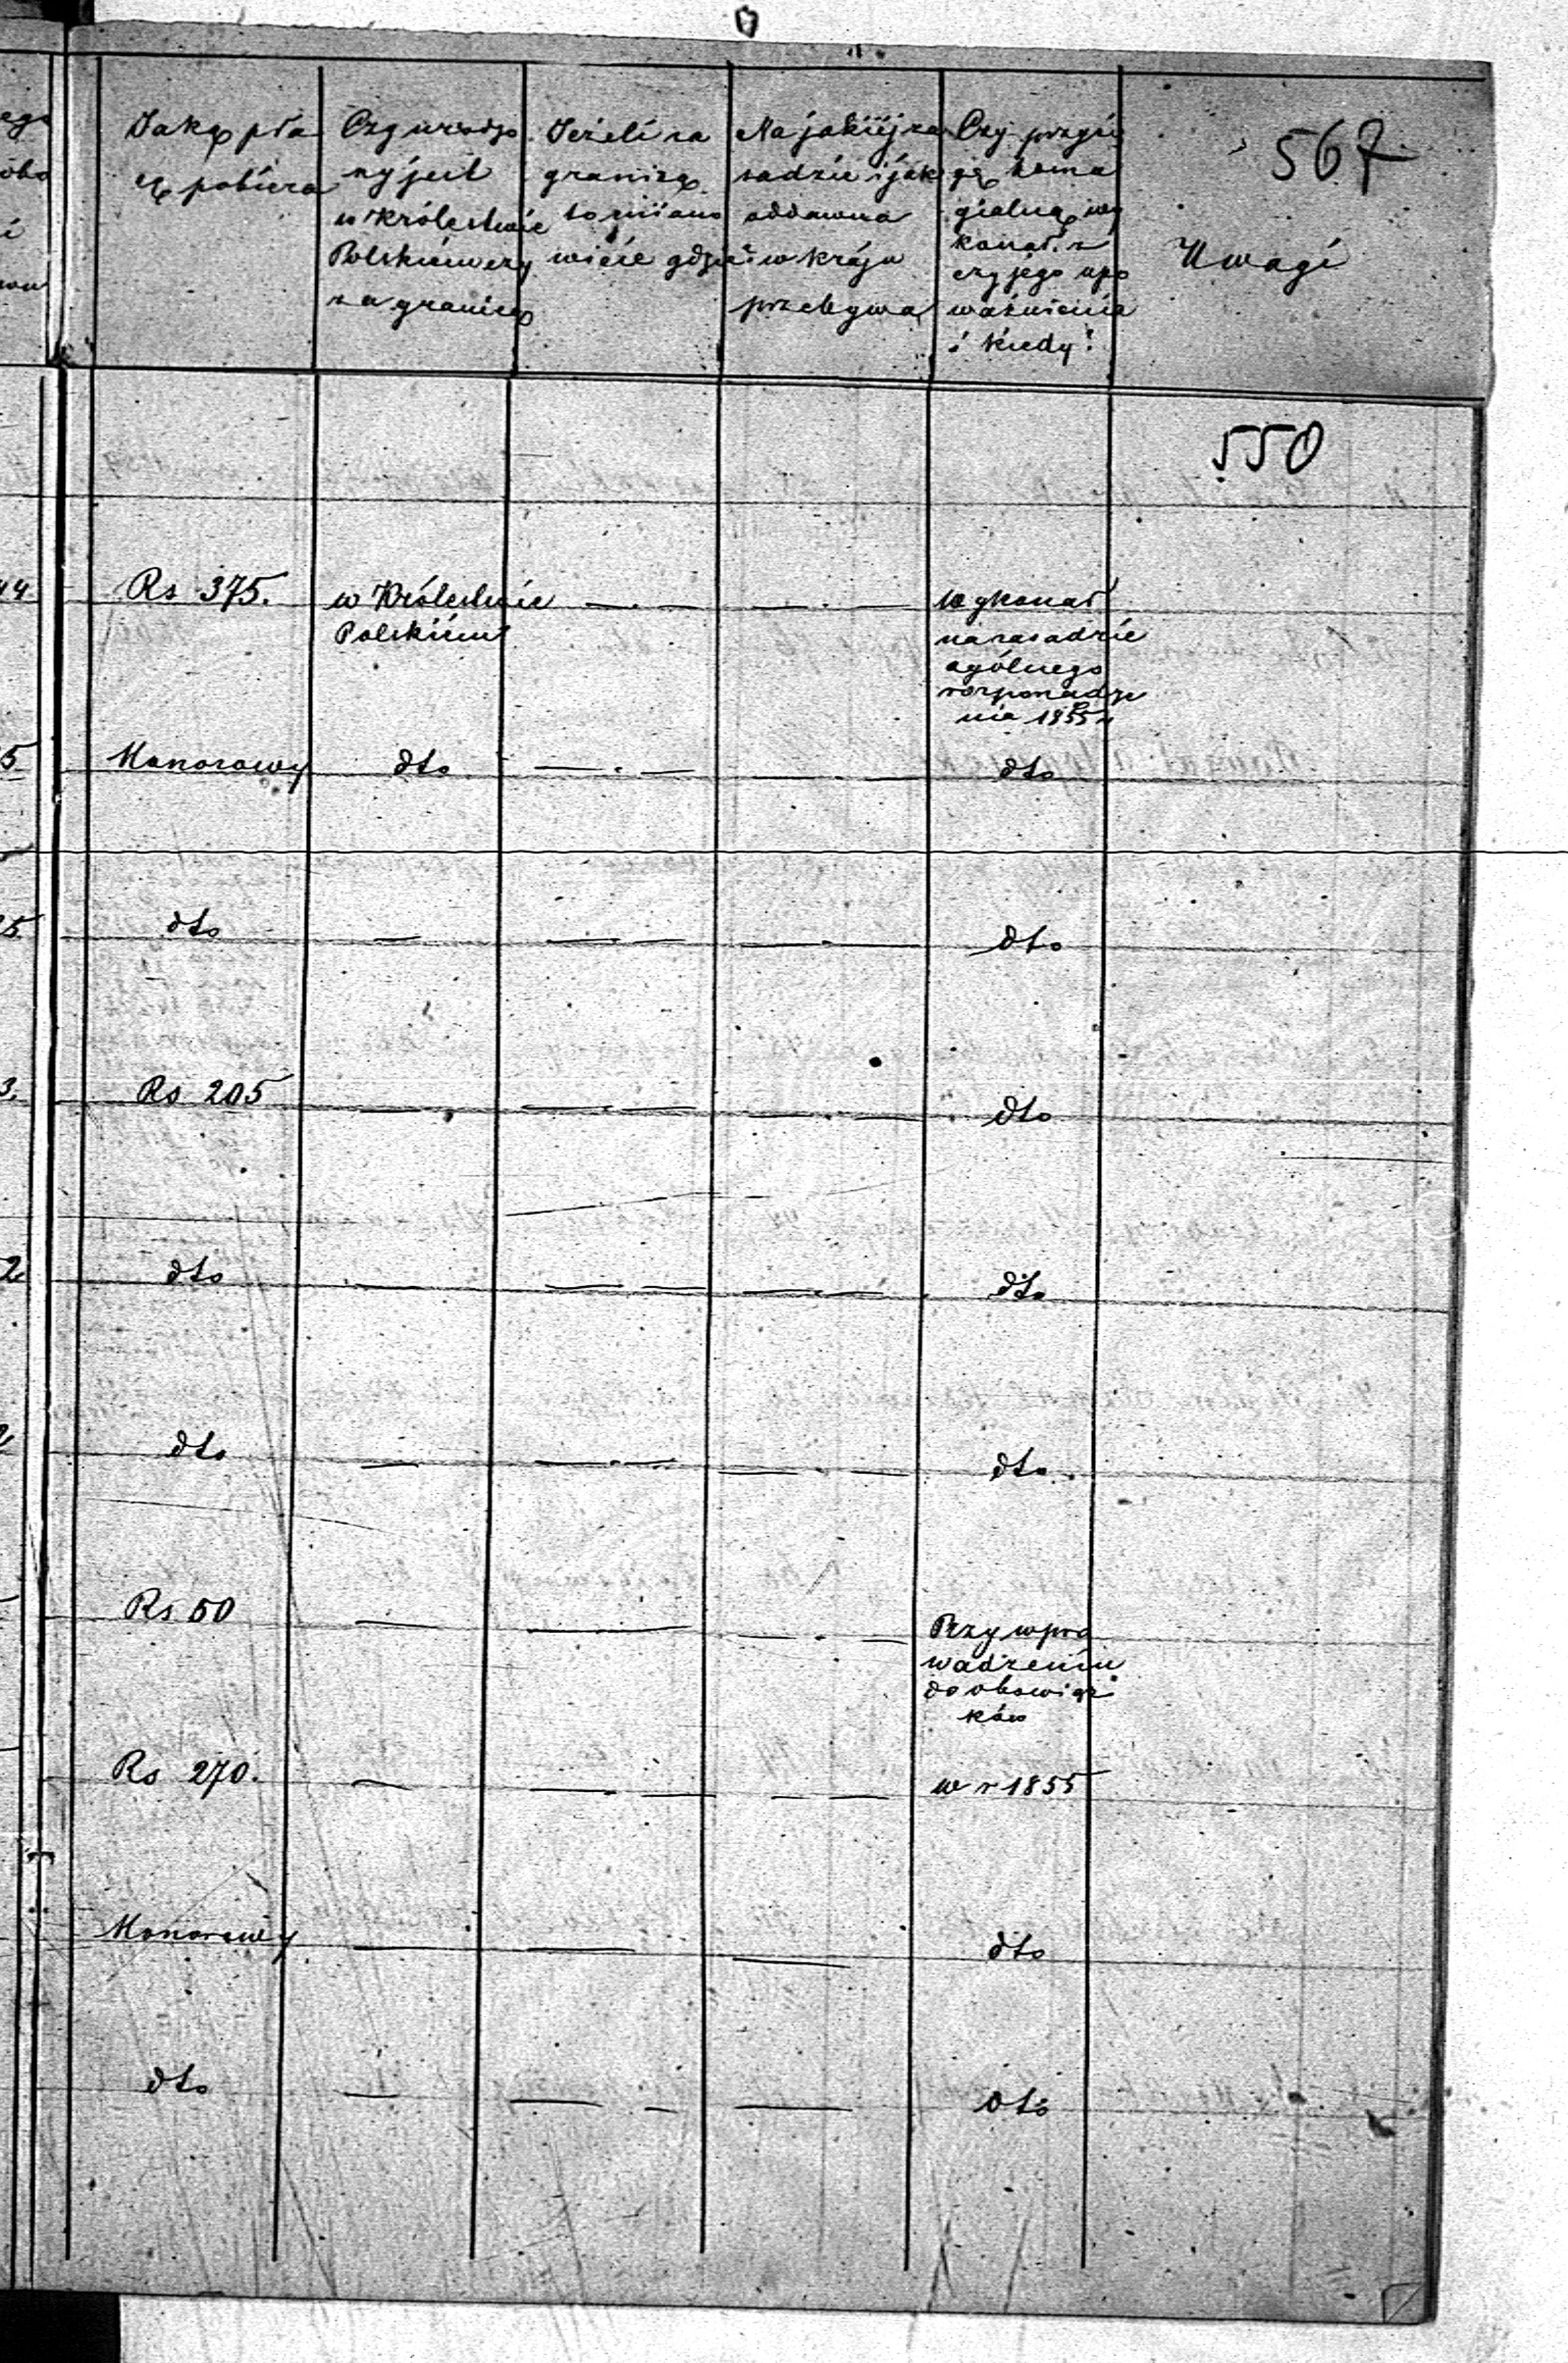 567
Jaką pła
cę pobiera
Czy urodzo
ny jest
w Królestwie
Polskiém czy
za granicą
Jeżeli za
granicą
to mian
wicie gdzie
Na jakiéj za
sadzie i jak
oddawna
w kraju
przebywa
Czy przysię
gę homa
gialną wy
konał z
czyjego upo
ważnienia
i kiedy?
Uwagi
550
44 Rs 375. w Królestwie — . — — . — wykonał
Polskiém na zasadzie
ogólnego
rozporządze
nia 1855 r
5 Honorowy dto — . — — . — dto
5. dto — — . — — . — dto
3. Rs 205 — — . — — . — dto
2 dto — — . — — . — dto
dto — — . — — . — dto
Rs 50 — — — . — Przy wpro
wadzeniu
do obowiąz
ków
Rs 270. — — . — — — w r 1855
Honorowy — — — dto
dto — — — — dto